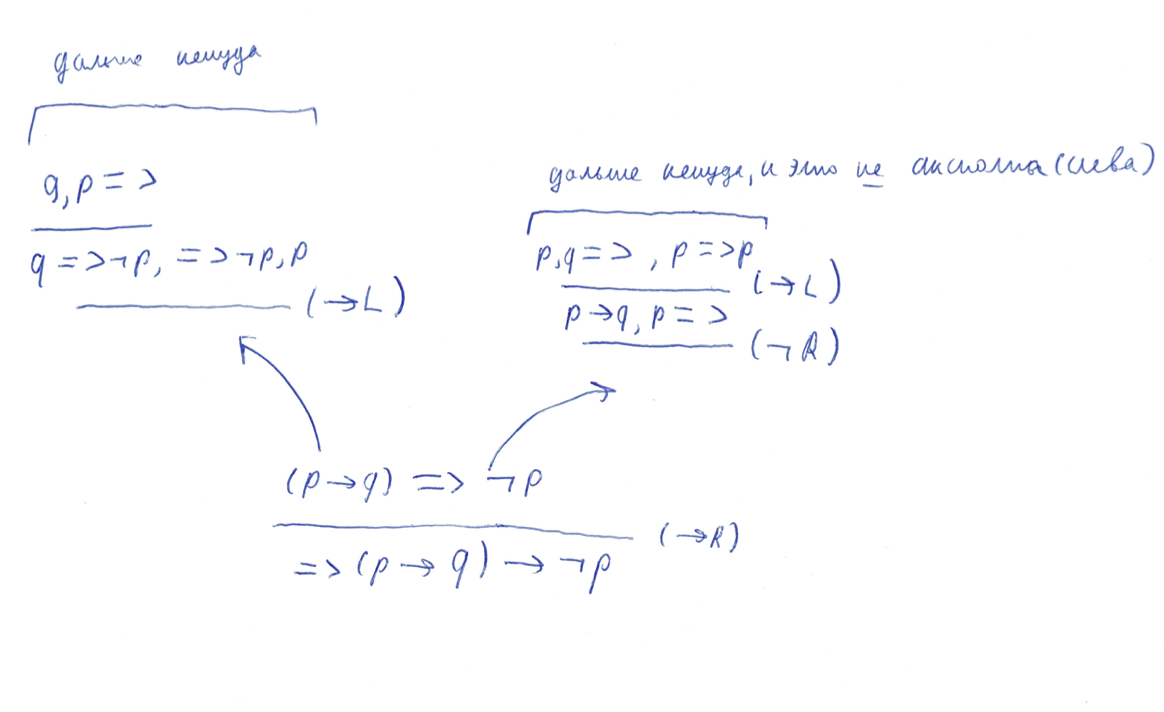 дальше некуда
q, p =>
q => ¬p, => ¬p, p
(→L)
дальше некуда, и это не аксиома (слева)
p, q => , p => p
(→L)
p → q, p =>
(¬R)
(p → q) => ¬p
(→R)
=> (p → q) → ¬p